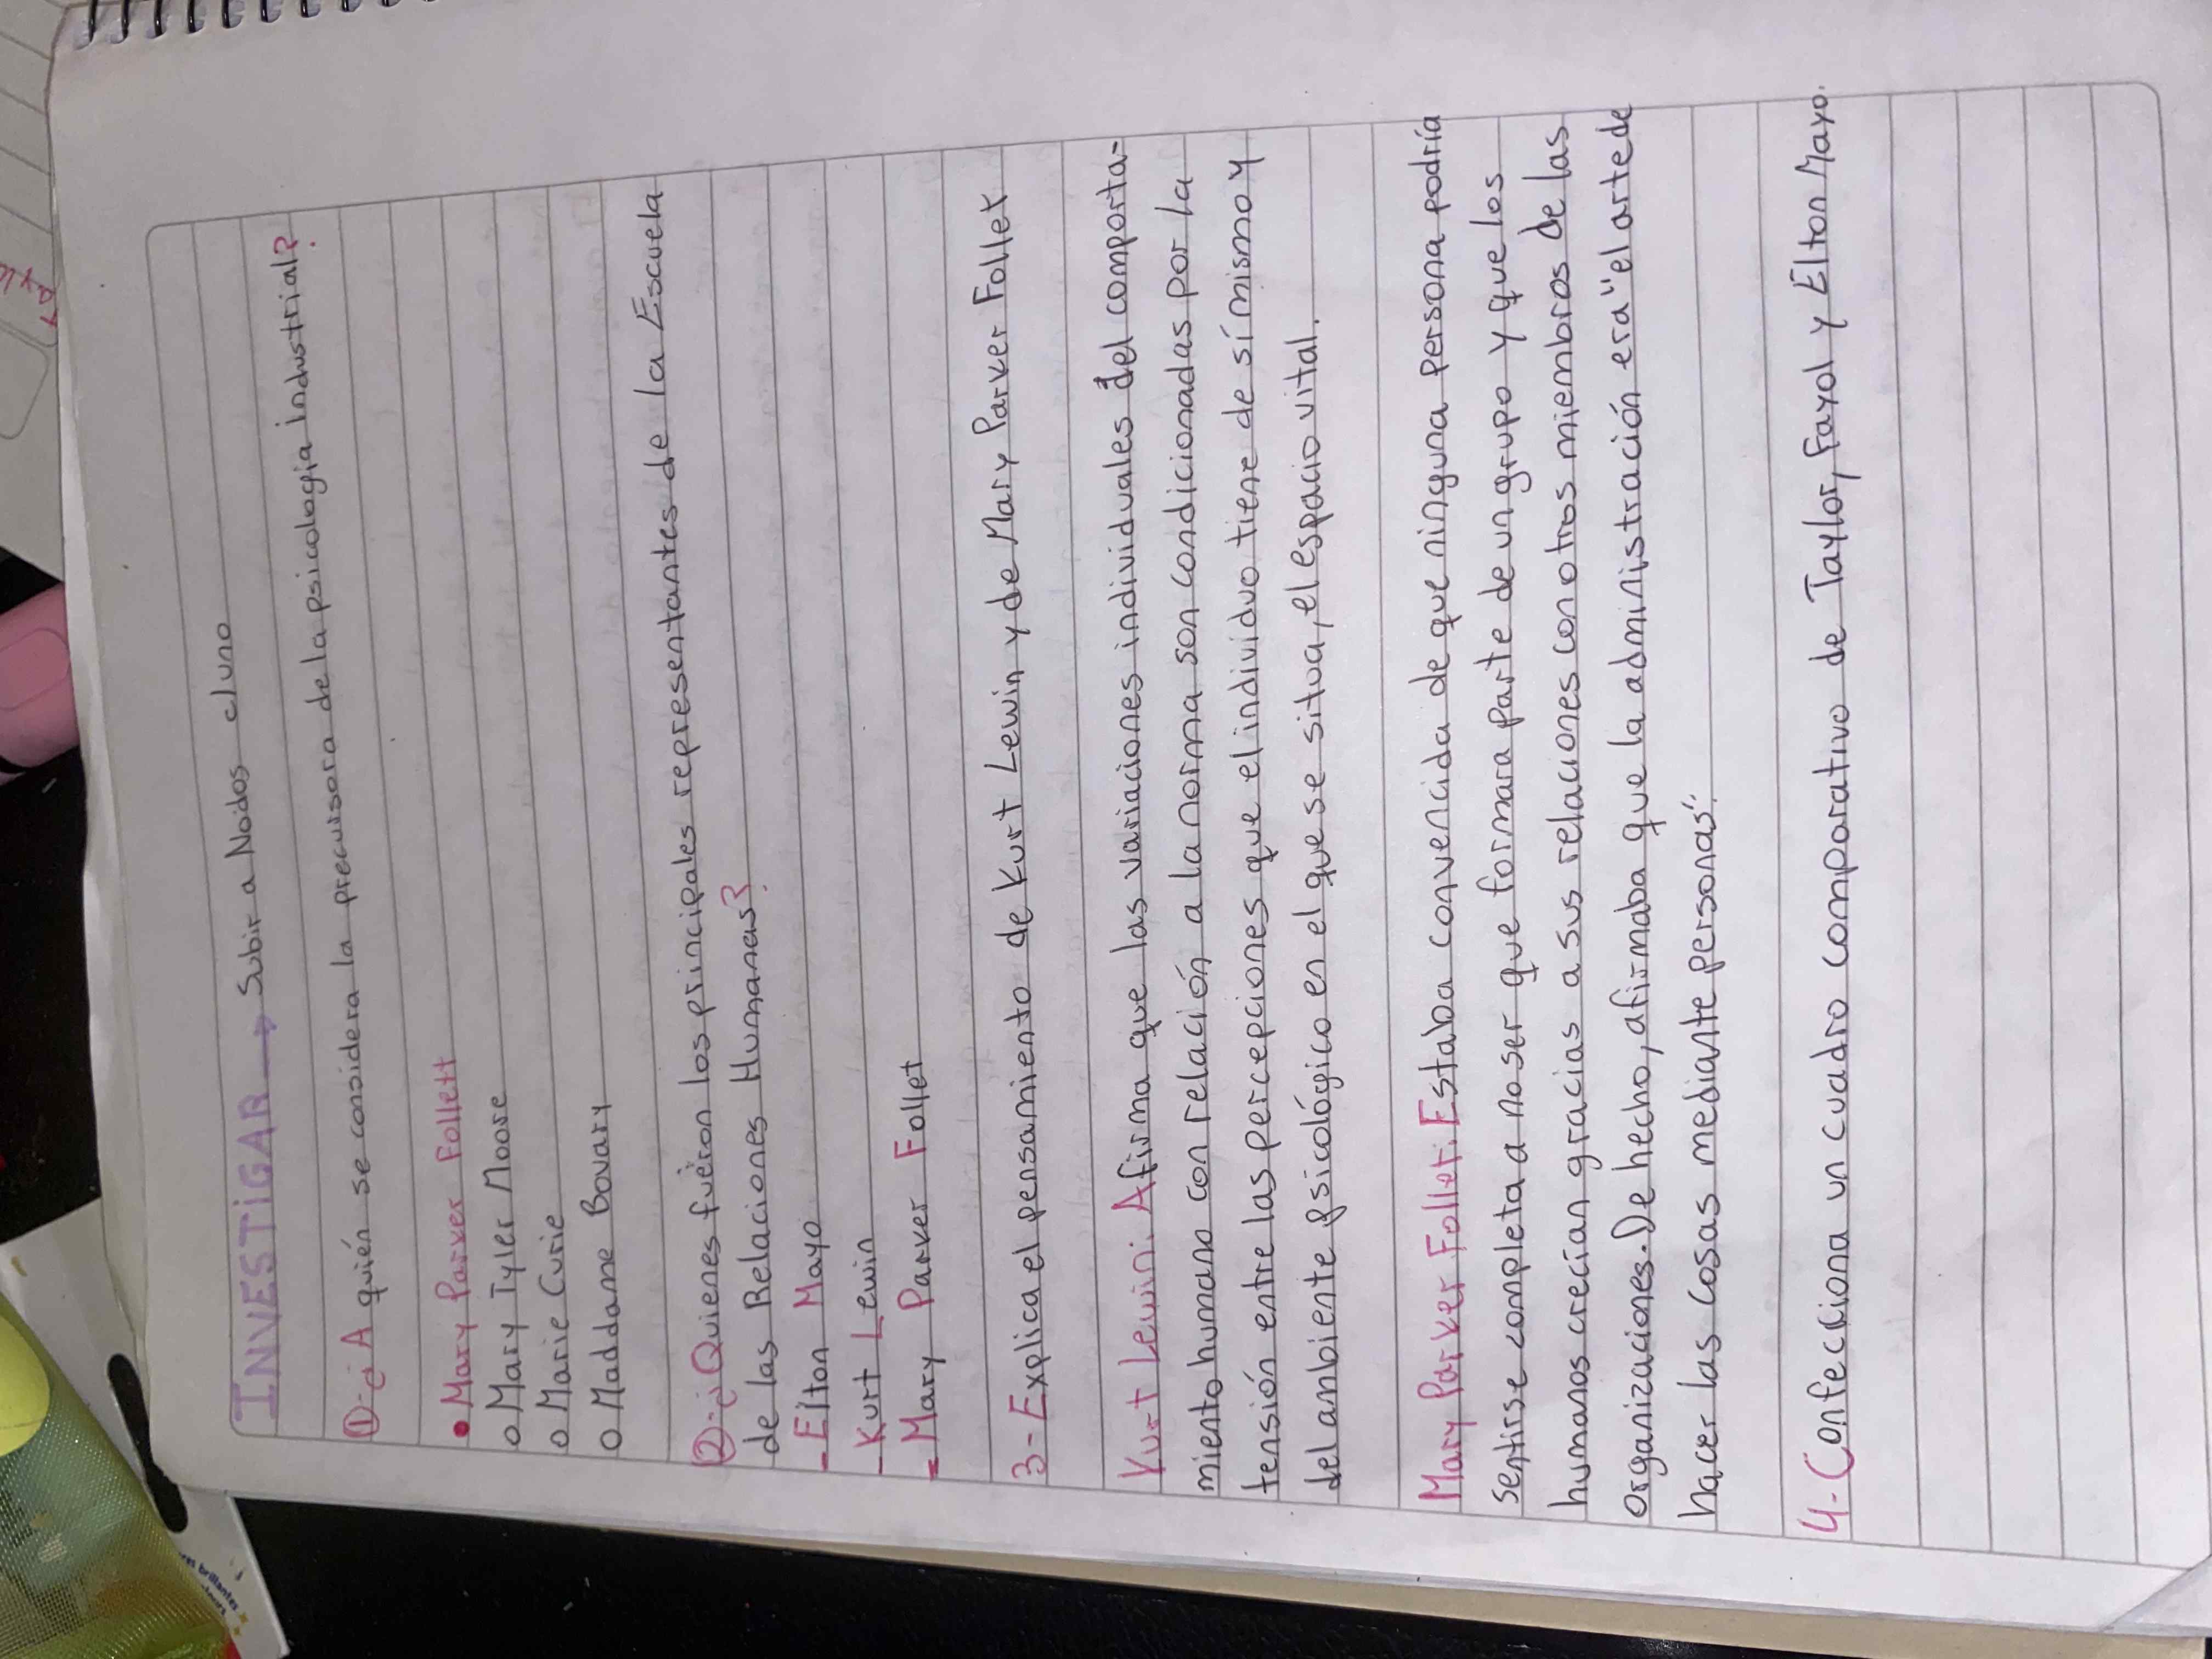 INVESTIGAR → Subir a Nodos c/uno
①-¿A quién se considera la precursora de la psicología industrial?
• Mary Parker Follett
o Mary Tyler Moore
o Marie Curie
o Maddame Bovary
②-¿Quienes fueron los principales representantes de la Escuela
de las Relaciones Humanas?
- Elton Mayo
- Kurt Lewin
- Mary Parker Follet
3- Explica el pensamiento de Kurt Lewin y de Mary Parker Follet
Kurt Lewin: Afirma que las variaciones individuales del comporta-
miento humano con relación a la norma son condicionadas por la
tensión entre las percepciones que el individuo tiene de sí mismo y
del ambiente psicológico en el que se situa, el espacio vital.
Mary Parker Follet: Estaba convencida de que ninguna persona podría
sentirse completa a no ser que formara parte de un grupo y que los
humanos crecían gracias a sus relaciones con otros miembros de las
organizaciones. De hecho, afirmaba que la administración era "el arte de
hacer las cosas mediante personas".
4- Confecciona un cuadro comparativo de Taylor, Fayol y Elton Mayo.
brillantes